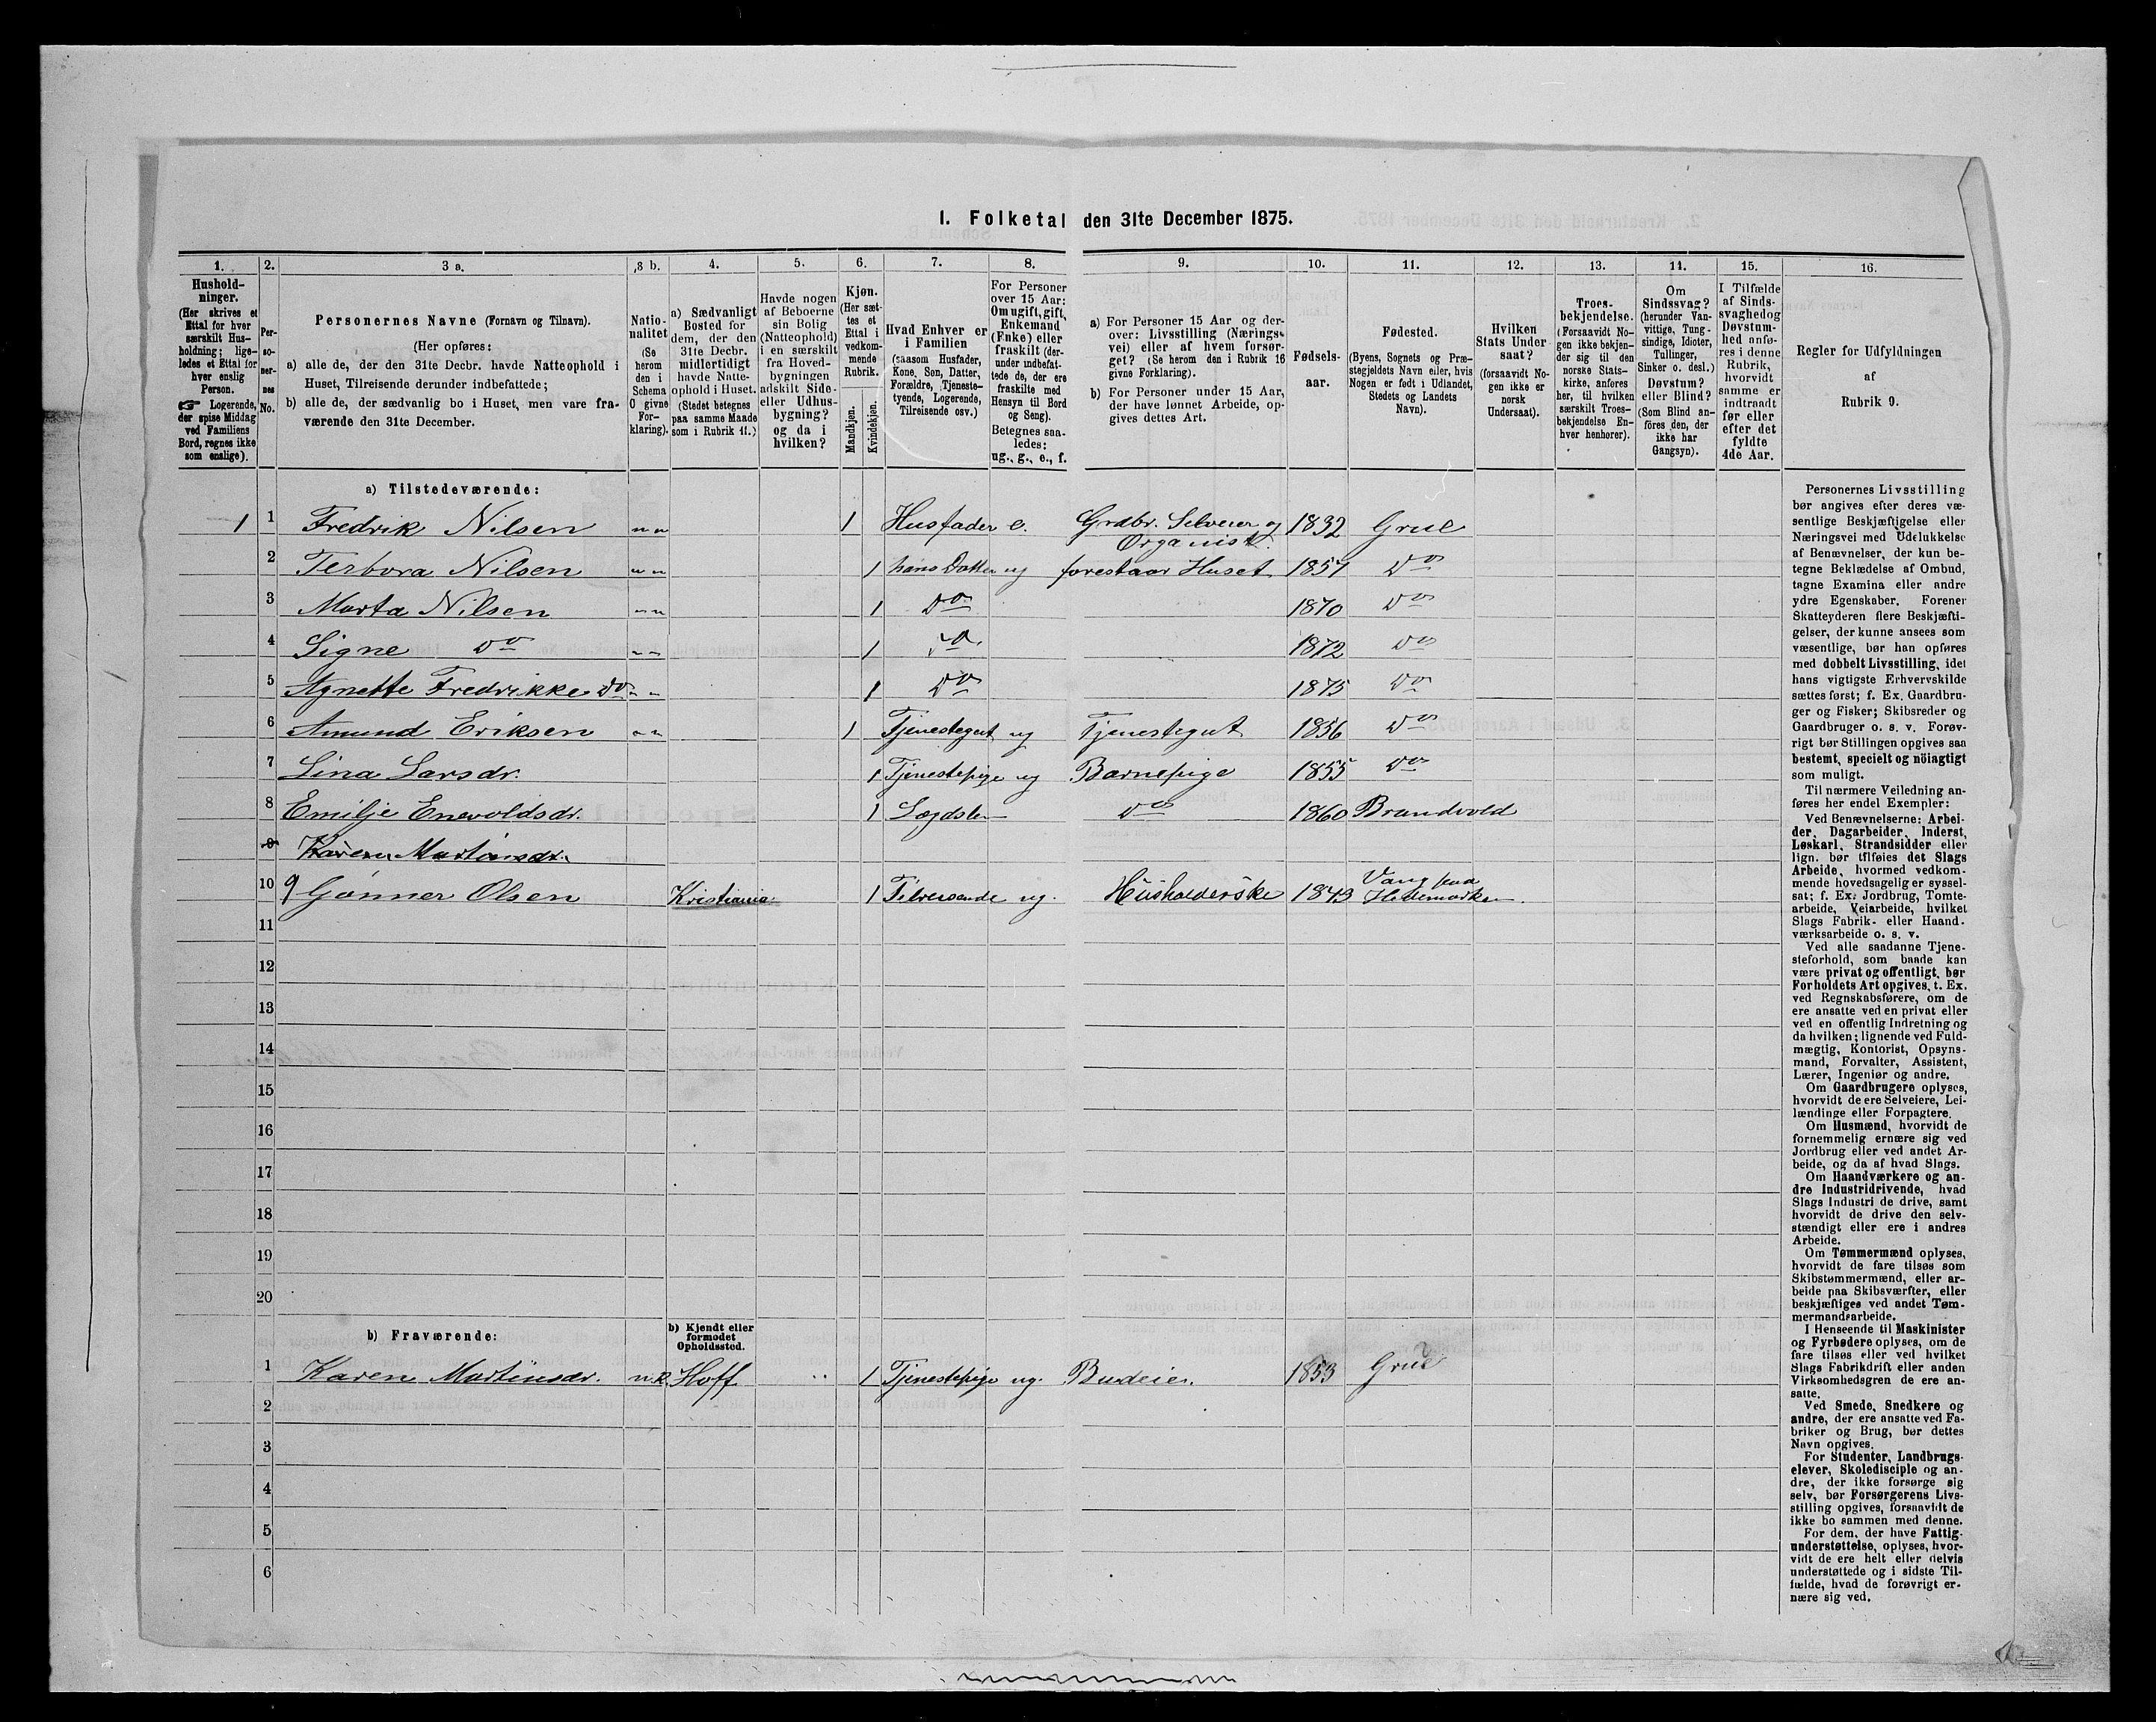 1. Folketal den 31te December 1875.
1.
2.
3 a.
3 b.
4.
5.
6.
7.
8.
9.
10.
11.
12.
13.
14.
15.
16.
Hushold-
ninger.
(Her skrives et
Ettal for hver
særskilt Hus-
holdning; lige-
ledes et Ettal for
hver enslig
Person.
☞ Logerende,
der spise Middag
ved Familiens
Bord, regnes ikke
som enslige).
Per-
so-
ner-
nes
No.
Personernes Navne (Fornavn og Tilnavn).
(Her opføres:
a) alle de, der den 31te Decbr. havde Natteophold i
Huset, Tilreisende derunder indbefattede;
b) alle de, der sædvanlig bo i Huset, men vare fra-
værende den 31te December.
Natio-
nalitet
(Se
herom
den i
Schema
O givne
For-
klaring).
a) Sædvanligt
Bosted for
dem, der den
31te Decbr.
midlertidigt
havde Natte-
ophold i Huset.
(Stedet betegnes
paa samme Maade
som i Rubrik 11.)
Havde nogen
af Beboerne
sin Bolig
(Natteophold)
i en særskilt
fra Hoved-
bygningen
adskilt Side-
eller Udhus-
bygning?
og da i
hvilken?
Kjøn.
(Her sæt-
tes et
Ettal i
vedkom-
mende
Rubrik.
Mandkjøn.
Kvindekjøn.
Hvad Enhver er
i Familien
(saasom Husfader,
Kone, Søn, Datter,
Forældre, Tjeneste-
tyende, Logerende,
Tilreisende osv.)
For Personer
over 15 Aar:
Om ugift, gift,
Enkemand
(Enke) eller
fraskilt (der-
under indbefat-
tede de, der ere
fraskilte med
Hensyn til Bord
og Seng).
Betegnes saa-
ledes:
ug., g., e., f.
a) For Personer 15 Aar og der-
over: Livsstilling (Nærings-
vei) eller af hvem forsør-
get? (Se herom den i Rubrik 16
givne Forklaring).
b) For Personer under 15 Aar,
der have lønnet Arbeide, op-
gives dettes Art.
Fødsels-
aar.
Fødested.
(Byens, Sognets og Præ-
stegjeldets Navn eller, hvis
Nogen er født i Udlandet,
Stedets og Landets
Navn).
Hvilken
Stats Under-
saat?
(forsaavidt No-
gen ikke er
norsk
Undersaat).
Troes-
bekjendelse.
(Forsaavidt No-
gen ikke bekjen-
der sig til den
norske Stats-
kirke, anføres
her, til hvilken
særskilt Troes-
bekjendelse En-
hver henhører).
Om
Sindssvag?
(herunder Van-
vittige, Tung-
sindige, Idioter,
Tullinger,
Sinker o. desl.)
Døvstum?
eller Blind?
(Som Blind an-
føres den, der
ikke har
Gangsyn).
I Tilfælde
af Sinds-
svaghed og
Døvstum-
hed anfø-
res i denne
Rubrik,
hvorvidt
samme er
indtraadt
før eller
efter det
fyldte
4de Aar.
Regler for Udfyldningen
af
Rubrik 9.
a) Tilstedeværende:
1 1 Fredrik Nilsen 1 Husfader e. Grdbr. Selveier og Organist. 1832 Grue
2 Terbora Nilsen 1 hans Datter ug forestaar Huset 1857 Do
3 Marta Nilsen 1 Do 1870 Do
4 Signe Do 1 Do 1872 Do
5 Agnette Fredrikke Do 1 Do 1875 Do
6 Amund Eriksen 1 Tjenestegut ug Tjenestegut 1856 Do
7 Lina Larsdr. 1 Tjenestepige ug Barnepige 1855 Do
8 Emilje Enevoldsdr. 1 Lægdslem Do 1860 Brandvold
9 Karen Martinsdr.
10 9 Gunner Olsen Kristiania 1 Tilreisende ug. Husholderske 1843 Vang paa Hedemarken.
11
12
13
14
15
16
17
18
19
20
b) Fraværende:
b) Kjendt eller
formodet
Opholdssted.
1 Karen Martinsdr. Hoff 1 Tjenestepige ug. Budeie. 1853 Grue
2
3
4
5
6
Personernes Livsstilling
bør angives efter deres væ-
sentlige Beskjæftigelse eller
Næringsvei med Udelukkelse
af Benævnelser, der kun be-
tegne Beklædelse af Ombud,
tagne Examina eller andre
ydre Egenskaber. Forener
Skatteyderen flere Beskjæfti-
gelser, der kunne ansees som
væsentlige, bør han opføres
med dobbelt Livsstilling, idet
hans vigtigste Erhvervskilde
sættes først; f. Ex. Gaardbru-
ger og Fisker; Skibsreder og
Gaardbruger o. s. v. Forøv-
rigt bør Stillingen opgives saa
bestemt, specielt og nöiagtigt
som muligt.
Til nærmere Veiledning an-
føres her endel Exempler:
Ved Benævnelserne: Arbei-
der, Dagarbeider, Inderst,
Løskarl, Strandsidder eller
lign. bør tilføies det Slags
Arbeide, hvormed vedkom-
mende hovedsagelig er syssel-
sat; f. Ex. Jordbrug, Tomte-
arbeide, Veiarbeide, hvilket
Slags Fabrik- eller Haand-
værksarbeide o. s. v.
Ved alle saadanne Tjene-
steforhold, som baade kan
være privat og offentligt, bør
Forholdets Art opgives, t. Ex.
ved Regnskabsførere, om de
ere ansatte ved en privat eller
ved en offentlig Indretning og
da hvilken; lignende ved Fuld-
mægtig, Kontorist, Opsyns-
mand, Forvalter, Assistent,
Lærer, Ingeniør og andre.
Om Gaardbrugere oplyses,
hvorvidt de ere Selveiere, Lei-
lændinge eller Forpagtere.
Om Husmænd, hvorvidt de
fornemmelig ernære sig ved
Jordbrug eller ved andet Ar-
beide, og da af hvad Slags.
Om Haandværkere og an-
dre Industridrivende, hvad
Slags Industri de drive, samt
hvorvidt de drive den selv-
stændigt eller ere i andres
Arbeide.
Om Tømmermænd oplyses,
hvorvidt de fare tilsøs som
Skibstømmermænd, eller ar-
beide paa Skibsværfter, eller
beskjæftiges ved andet Tøm-
mermandsarbeide.
I Henseende til Maskinister
og Fyrbødere oplyses, om de
fare tilsøs eller ved hvilket
Slags Fabrikdrift eller anden
Virksomhedsgren de ere an-
satte.
Ved Smede, Snedkere og
andre, der ere ansatte ved Fa-
briker og Brug, bør dettes
Navn opgives.
For Studenter, Landbrugs-
elever, Skoledisciple og an-
dre, der ikke forsørge sig
selv, bør Forsørgerens Livs-
stilling opgives, forsaavidt de
ikke bo sammen med denne.
For dem, der have Fattig-
understøttelse, oplyses, hvor-
vidt de ere helt eller delvis
understøttede og i sidste Til-
fælde, hvad de forøvrigt er-
nære sig ved.